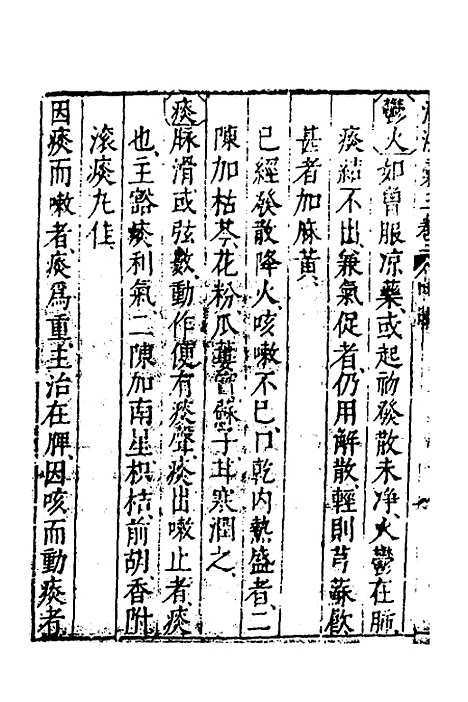 鬱火如曾服凉藥或起初發散未净火鬱在肺
痰結不出兼氣促者仍用解散輕則芎蘇飲
甚者加麻黃
已經發散降火咳嗽不巳口乾内熱盛者二
陳加枯芩花粉瓜蔞蘇子耳寒潤之
痰脉滑或弦數動作便有痰聲痰出嗽止者痰
也主豁痰利氣二陳加南星枳桔前胡香附
滚痰丸佳
因痰而嗽者痰爲重主治在脾因咳而動痰者